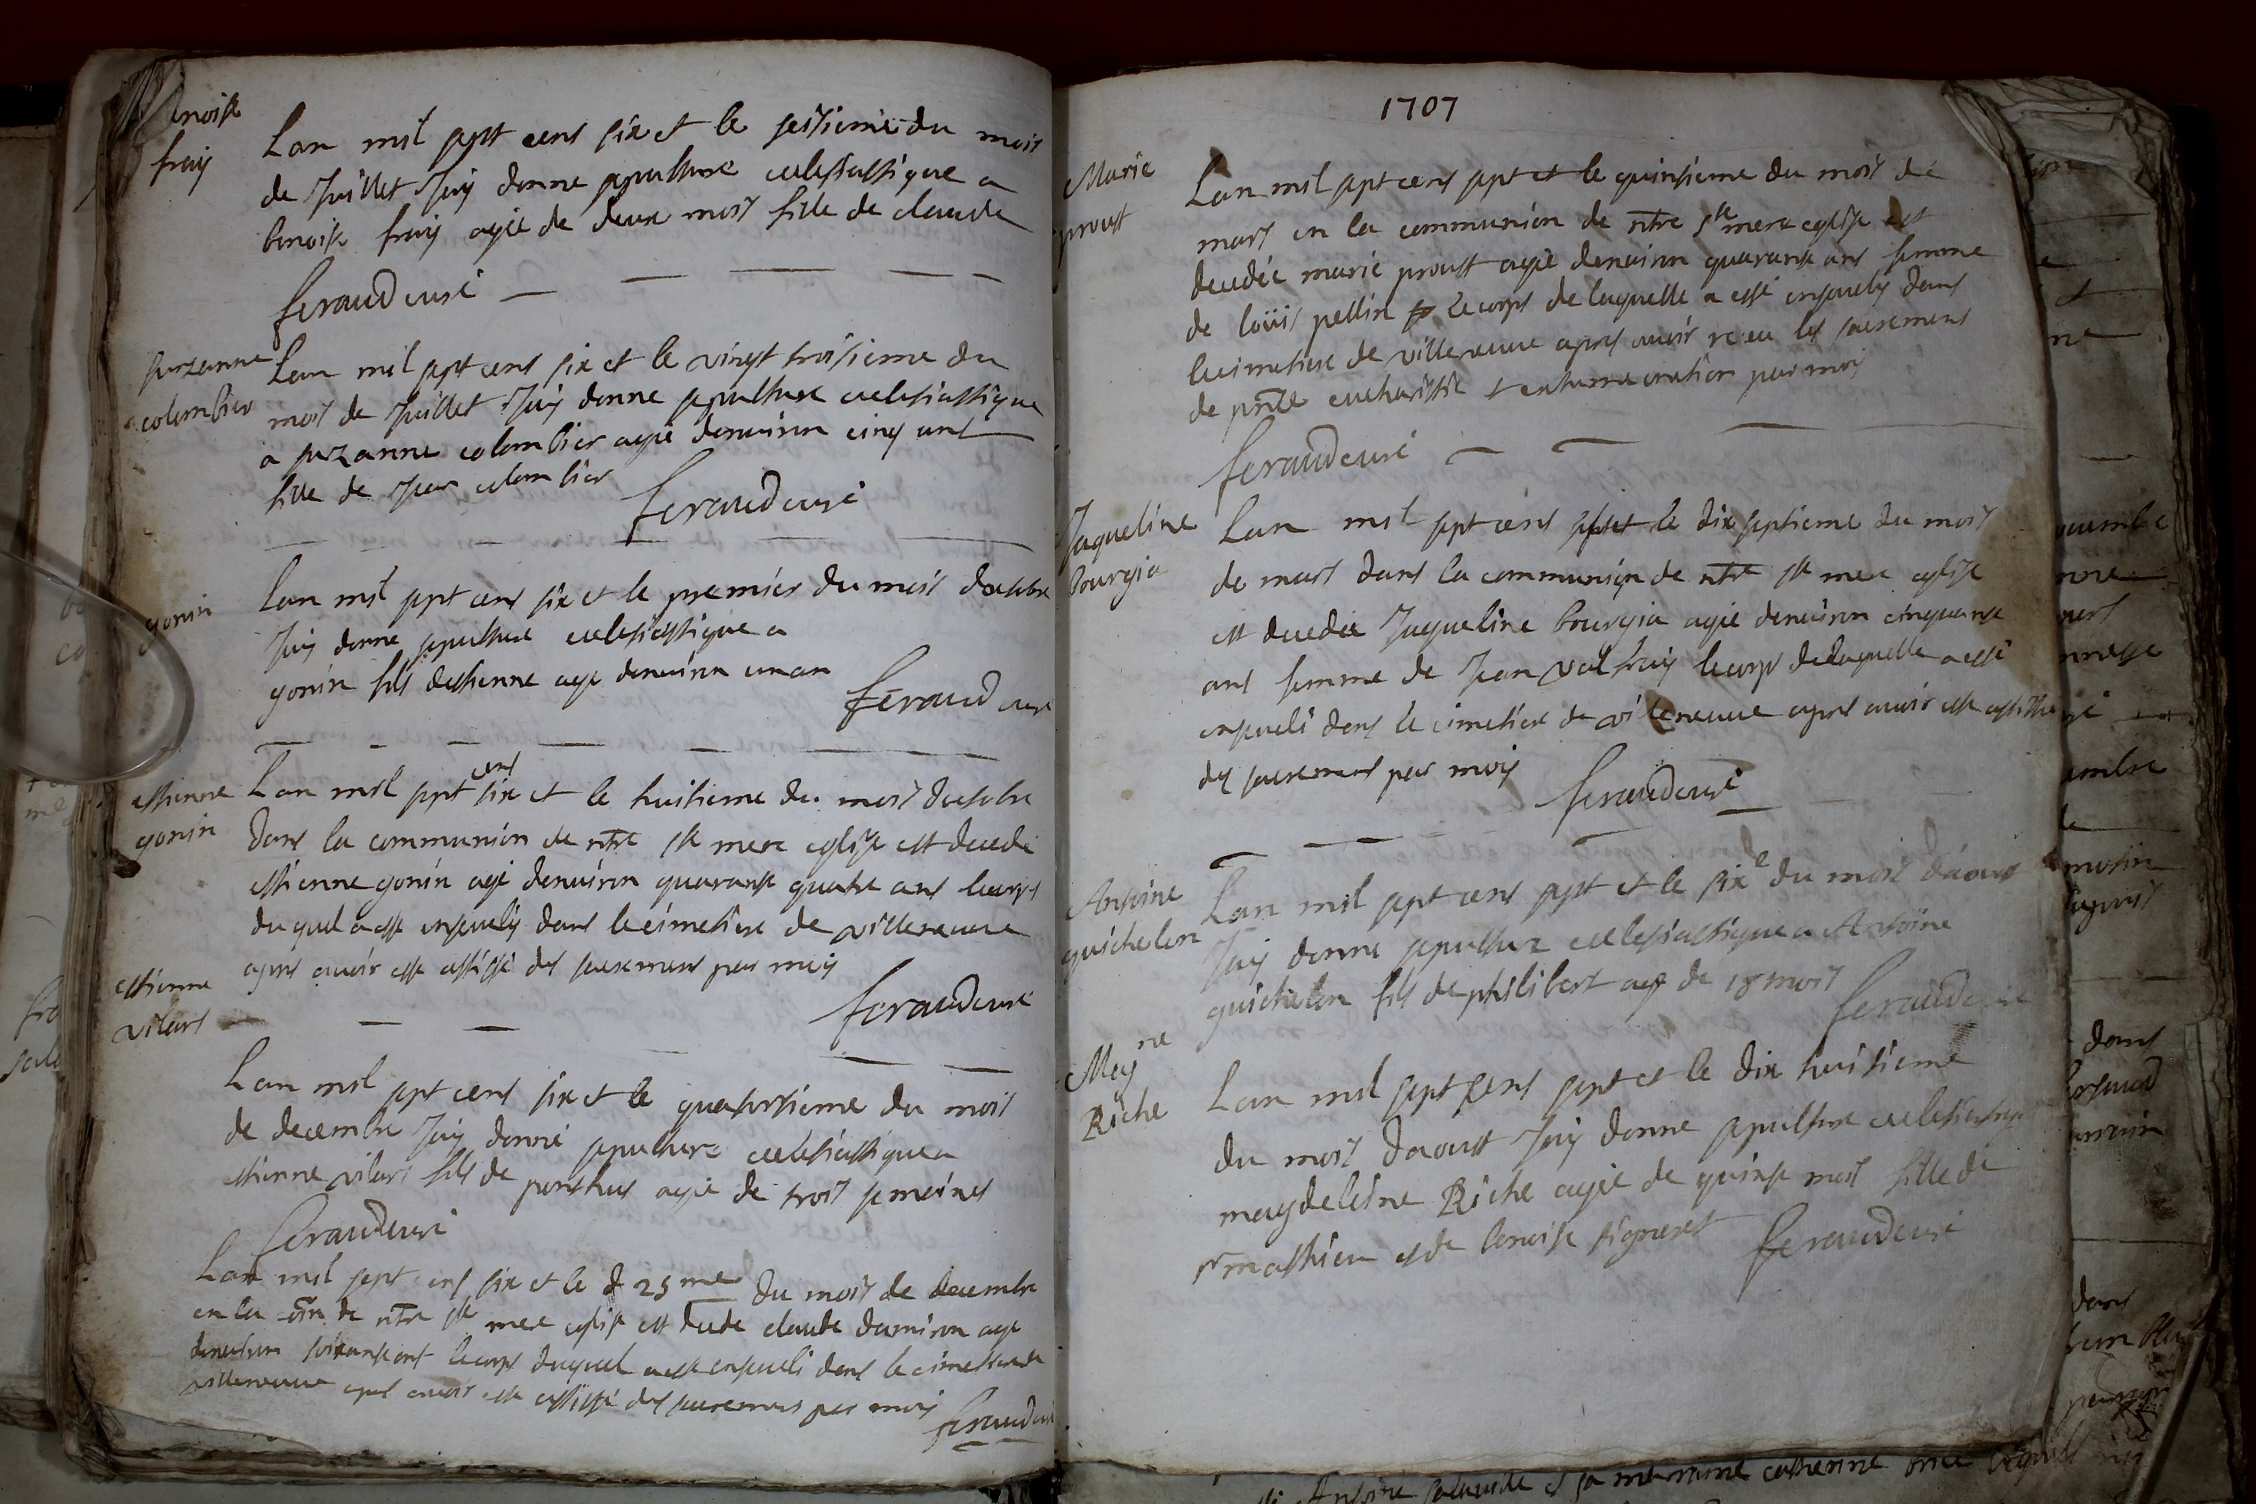 benoiste
fraiy
Lan mil sept cens six et le seisieme du mois
de Juillet Jay donne sepulture ecclesiastique a
benoiste fraiy agée de deux mois fille de claude
feraud curé
suzanne
colombier
Lan mil sept cens six et le vingt troisieme du
mois de Juillet Jay donne sepulture ecclesiastique
a suzanne colombier agée denuiron cinq ans
fille de Jean colombier
feraud curé
gonin
Lan mil sept cens six et le premier du mois doctobre
Jay donne sepulture ecclesiastique a
gonin fils destienne age denuiron un an
feraud curé
estienne
gonin
Lan mil sept cens six et le huitieme du mois doctobre
dans la communion de ntre ste mere eglise est decedé
estienne gonin agé denuiron quarante quatre ans le corps
du quel a esté enseuely dans le cimetiere de villeneuue
apres auoir este assisté des sacremens par moy
feraud curé
estienne
vilars
Lan mil sept cens six et le quatorsieme du mois
de decembre Jay donné sepulture ecclesiastique a
estienne vilars fils de ponthus agé de trois semaines
feraud curé
Lan mil sept cens six et le 25me du mois de decembre
en la com de ntre ste mere eglise est decede claude damiron age
denuiron soixante ans le corps duquel a este enseueli dans le cimetiere de
villeneuue apres auoir este assisté des sacremens par moy
feraud curé
1707
Marie
proust
Lan mil sept cens sept et le quinsieme du mois de
mars en la communion de ntre ste mere eglise est
decedée marie proust agée denuiron quarante ans femme
de loüis pellin le corps de laquelle a esté enseuely dans
le cimetiere de villeneuue apres auoir receu les sacremens
de pnce eucharistie et extreme onction par moy
feraud curé
Jaqueline
bourgia
Lan mil sept cens sept et le dix septieme du mois
de mars dans la communion de ntre ste mere eglise
est decedée Jaqueline bourgia agée denuiron cinquante
ans femme de Jean valfraiy le corps de laquelle a esté
enseueli dans le cimetiere de villeneuue apres auoir este assistée
des sacremens par moy
feraud curé
Antoine
guichelon
Lan mil sept cens sept et le sixe du mois daoust
Jay donne sepulture ecclesiastique a Antoine
guichelon fils de philibert age de 18 mois
feraud curé
Magne
Riche
Lan mil sept cens sept et le dix huitieme
du mois daoust Jay donne sepulture ecclesiastique
a magdeleine Riche agée de quinse mois fille de
sr mathieu et de benoiste signeret
feraud curé